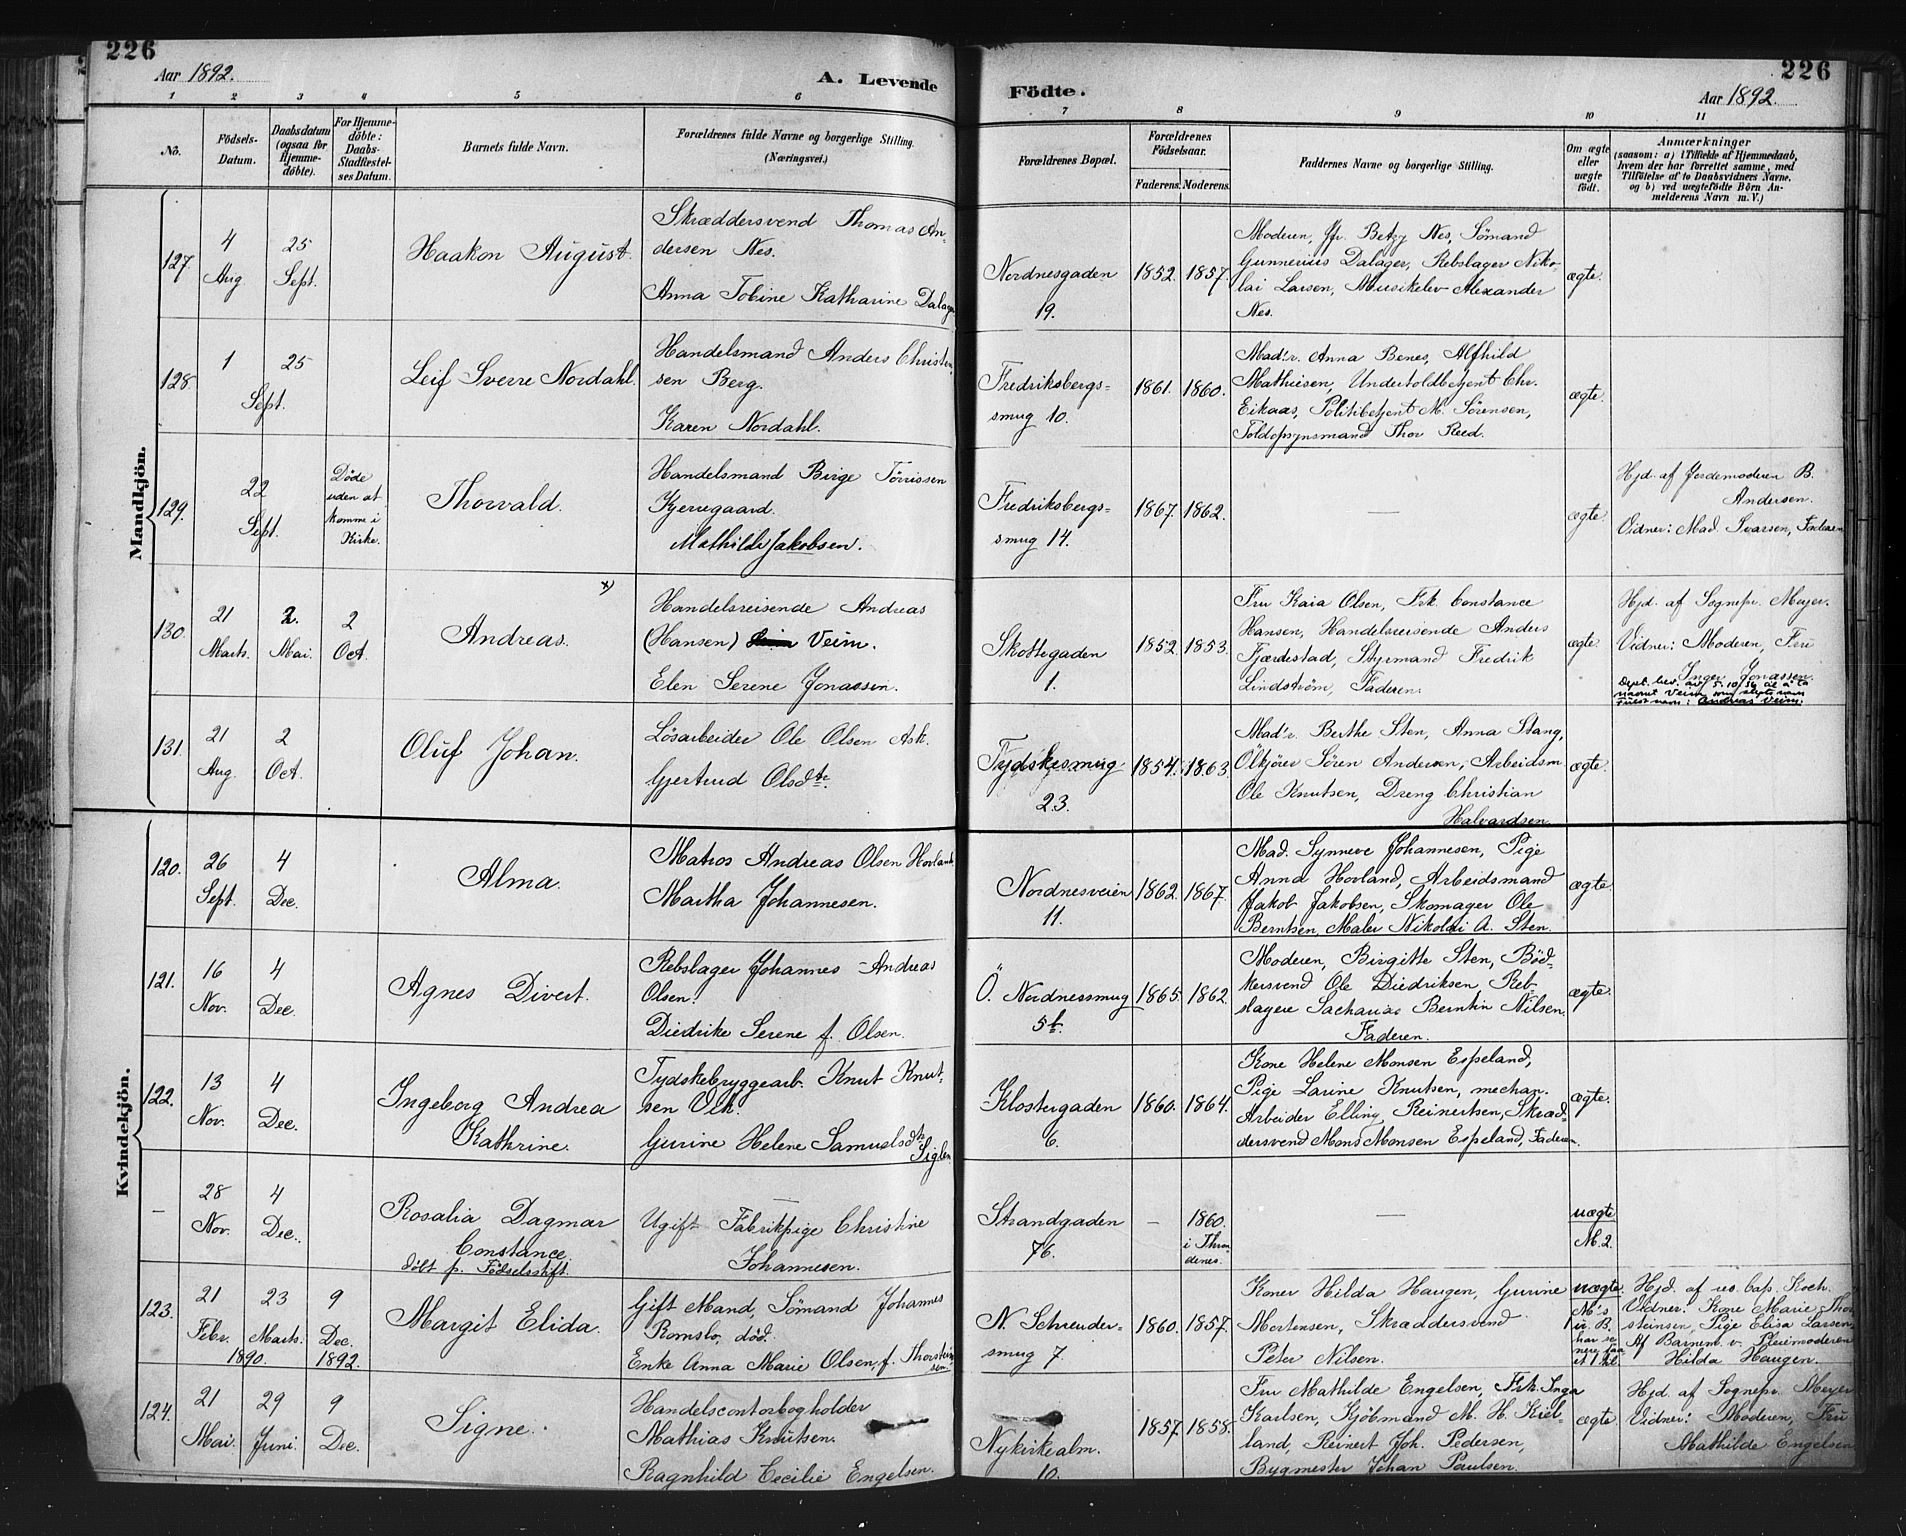 226
226
Aar 1892.
A. Levende
Födte.
Aar 1892.
1 2 3 4 5 6 7 8 9 10 11
No.
Födsels-
Datum.
Daabsdatum
(ogsaa for
Hjemme-
döbte).
For Hjemme-
döbte:
Daabs-
Stadfæstel-
ses Datum.
Barnets fulde Navn.
Forældrenes fulde Navne og borgerlige Stilling.
(Næringsvei.)
Forældrenes Bopæl.
Forældrenes
Födselsaar.
Faderens.
Moderens.
Faddernes Navne og borgerlige Stilling.
Om ægte
eller
uægte
födt.
Anmærkninger
(saasom: a) i Tilfælde af Hjemmedaab,
hvem der har forrettet samme, med
Tilföielse af to Daabsvidners Navne,
og b) ved uægtefödte Börn An-
melderens Navn m. V.)
Mandkjön.
127.
4
Aug
25
Sept.
Haakon August.
Skræddersvend Thomas An-
dersen Nes.
Anna Tobine Katharine Dalager
Nordnesgaden
19.
1852.
1857.
Moderen, Jfr. Betzy Nes, Sömand
Gunnerius Dalager, Rebslager Niko-
lai Larsen, Musikelev Alexander
Nes.
ægte.
128
1
25
Sept.
Leif Sverre Nordahl.
Handelsmand Anders Christen-
sen Berg.
Karen Nordahl.
Fredriksbergs-
smug 10.
1861.
1860.
Mad'r. Anna Benes, Alfhild
Mathiesen, Undertoldbetjent Chr.
Eikaas, Politibetjent M. Sörensen,
Toldopsynsmand Thor Reed.
ægte.
129.
22
Sept.
Döde
uden at
komme i
Kirke.
Thorvald.
Handelsmand Birge Törrissen
Kjerregaard.
Mathilde Jakobsen.
Fredriksbergs-
smug 14.
1867.
1862.
—
ægte.
Hjd. af Jordemoderen B.
Andersen.
Vidner: Mad. Ivarsen, Faderen
130.
21
Marts.
2.
Mai.
2
Oct.
x)
Andreas.
Handelsreisende Andreas
(Hansen) Veim.
Elen Serene Jonassen.
Skottegaden
1.
1852.
1853.
Fru Kaia Olsen, Frk. Constance
Hansen, Handelsreisende Anders
Fjærdestad, Styrmand Fredrik
Lindström, Faderen.
ægte.
Hjd. af Sognepr. Meyer.
Vidner: Moderen, Fru
Inger Jonassen.
Dept. bev. av 5.10.34 til å ta
navnet Veim som slektsnavn
Fullt navn: Andreas Veim.
131.
21
Aug.
2
Oct.
Oluf Johan.
Lösarbeider Ole Olsen Ask.
Gjertrud Olsdtr.
Tydskesmug
23.
1854.
1863.
Mad'r. Berthe Sten, Anna Stang,
Ölkjörer Sören Andersen, Arbeidsm.
Ole Knutsen, Dreng Christian
Halvardsen.
ægte.
Kvindekjön.
120.
26
Sept.
4
Dec.
Alma.
Matros Andreas Olsen Hovland.
Martha Johannesen.
Nordnesveien
11.
1862.
1867.
Mad. Synneve Johannesen, Pige
Anna Hovland, Arbeidsmand
Jakob Jakobsen, Skomager Ole
Berntsen, Maler Nikolai A. Sten.
ægte.
121.
16
Nov.
4
Dec.
Agnes Divert.
Rebslager Johannes Andreas
Olsen.
Diedrike Serene f. Olsen.
Ö. Nordnessmug
5b.
1865.
1862.
Moderen, Birgitte Sten, Böd-
kersvend Ole Diedriksen, Reb-
slagere Sacharias Berntin Nilsen,
Faderen.
ægte.
122.
13
Nov.
4
Dec.
Ingeborg Andrea
Kathrine.
Tydskebryggearb. Knut Knut-
sen Vik.
Gurine Helene Samuelsdtr.
Siglen
Klostergaden
6.
1860.
1864.
Kone Helene Monsen Espeland,
Pige Larine Knutsen, mechan.
Arbeider Elling Reinertsen, Skræd-
dersvend Mons Monsen Espeland, Faderen.
ægte.
—
28
Nov.
4
Dec.
Rosalia Dagmar
Constance.
döbt p. Födselsstift.
—
Ugift Fabrikpige Christine
Johannesen.
Strandgaden
76.
—
1860.
i Thron
denes.
—
uægte
M. 2.
123.
21
Febr.
23
Marts.
1890.
9
Dec.
1892.
Margit Elida.
Gift Mand, Sömand Johannes
Romslo, död.
Enke Anna Marie Olsen, f. Thorstein-
sen.
N. Schreuder-
smug 7.
1860.
1857.
Koner Hilda Haugen, Gurine
Mortensen, Skræddersvend
Peter Nilsen.
uægte.
M's
B.
har se
nere
et
Hjd. af res. Cap. Koch.
Vidner: Kone Marie Thor
steinsen, Pige Elisa Larsen,
Af Barnem. v. Pleiemoderen
Hilda Haugen.
124.
21
Mai.
29
Juni.
9
Dec.
Signe.
Handelscontorbogholder
Mathias Knutsen.
Ragnhild Cecilie Engelsen.
Nykirkealm.
10.
1857.
1858.
Fru Mathilde Engelsen, Frk. Inga
Karlsen, Kjöbmand M. H. Kiel-
land, Reinert Joh. Pedersen,
Bygmester Johan Paulsen.
ægte.
Hjd. af Sognepr. Meyer
Vidner: Moderen, Fru
Mathilde Engelsen